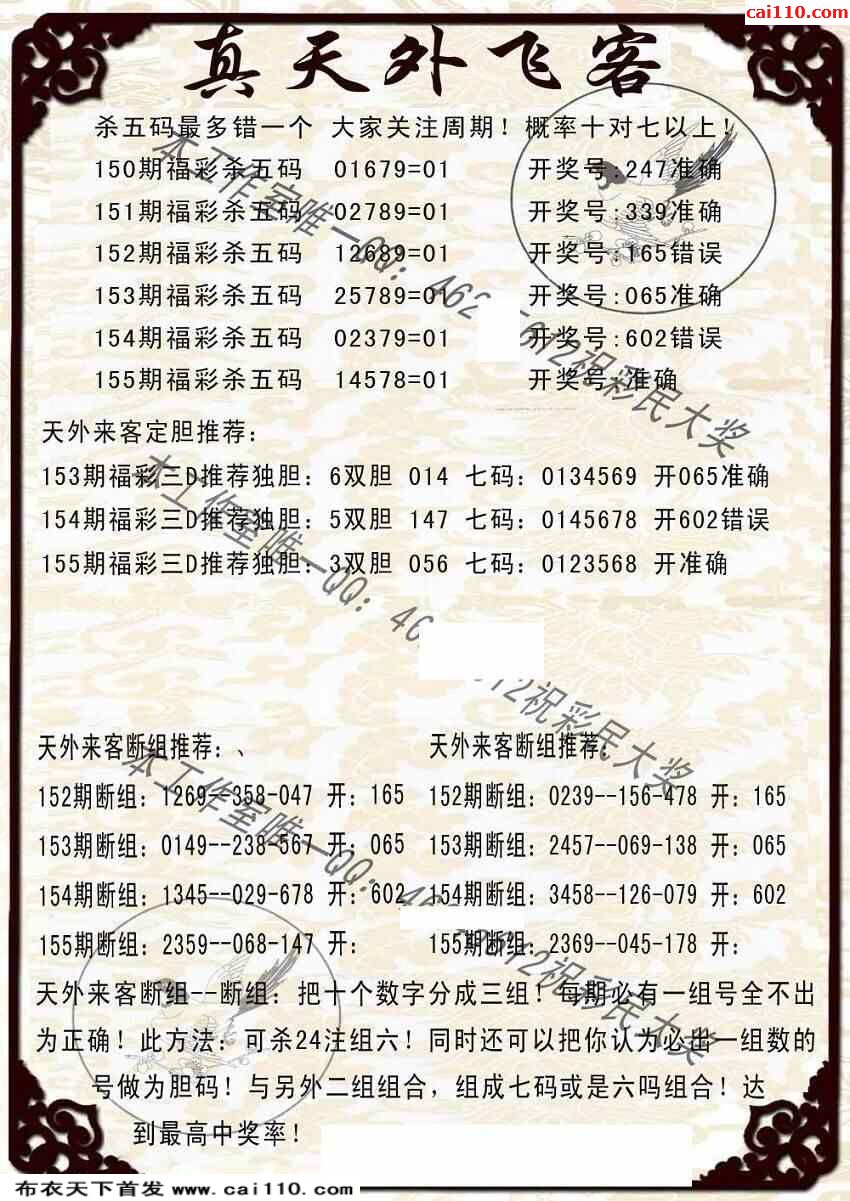 cai110.com
真天外飞客
杀五码最多错一个 大家关注周期！概率十对七以上！
150期福彩杀五码 01679=01 开奖号:247准确
151期福彩杀五码 02789=01 开奖号:339准确
152期福彩杀五码 12689=01 开奖号:165错误
153期福彩杀五码 25789=01 开奖号:065准确
154期福彩杀五码 02379=01 开奖号:602错误
155期福彩杀五码 14578=01 开奖号:准确
天外来客定胆推荐：
153期福彩三D推荐独胆：6双胆 014 七码：0134569 开065准确
154期福彩三D推荐独胆：5双胆 147 七码：0145678 开602错误
155期福彩三D推荐独胆：3双胆 056 七码：0123568 开准确
天外来客断组推荐：、
152期断组：1269--358-047 开：165
153期断组：0149--238-567 开：065
154期断组：1345--029-678 开：602
155期断组：2359--068-147 开：
天外来客断组推荐：
152期断组：0239--156-478 开：165
153期断组：2457--069-138 开：065
154期断组：3458--126-079 开：602
155期断组：2369--045-178 开：
天外来客断组--断组：把十个数字分成三组！每期必有一组号全不出
为正确！此方法：可杀24注组六！同时还可以把你认为必出一组数的
号做为胆码！与另外二组组合，组成七码或是六吗组合！达
到最高中奖率！
本工作室唯一QQ：462 612祝彩民大奖
本工作室唯一QQ：46 612祝彩民大奖
本工作室唯一QQ：46 612祝彩民大奖
布衣天下首发 www.cai110.com